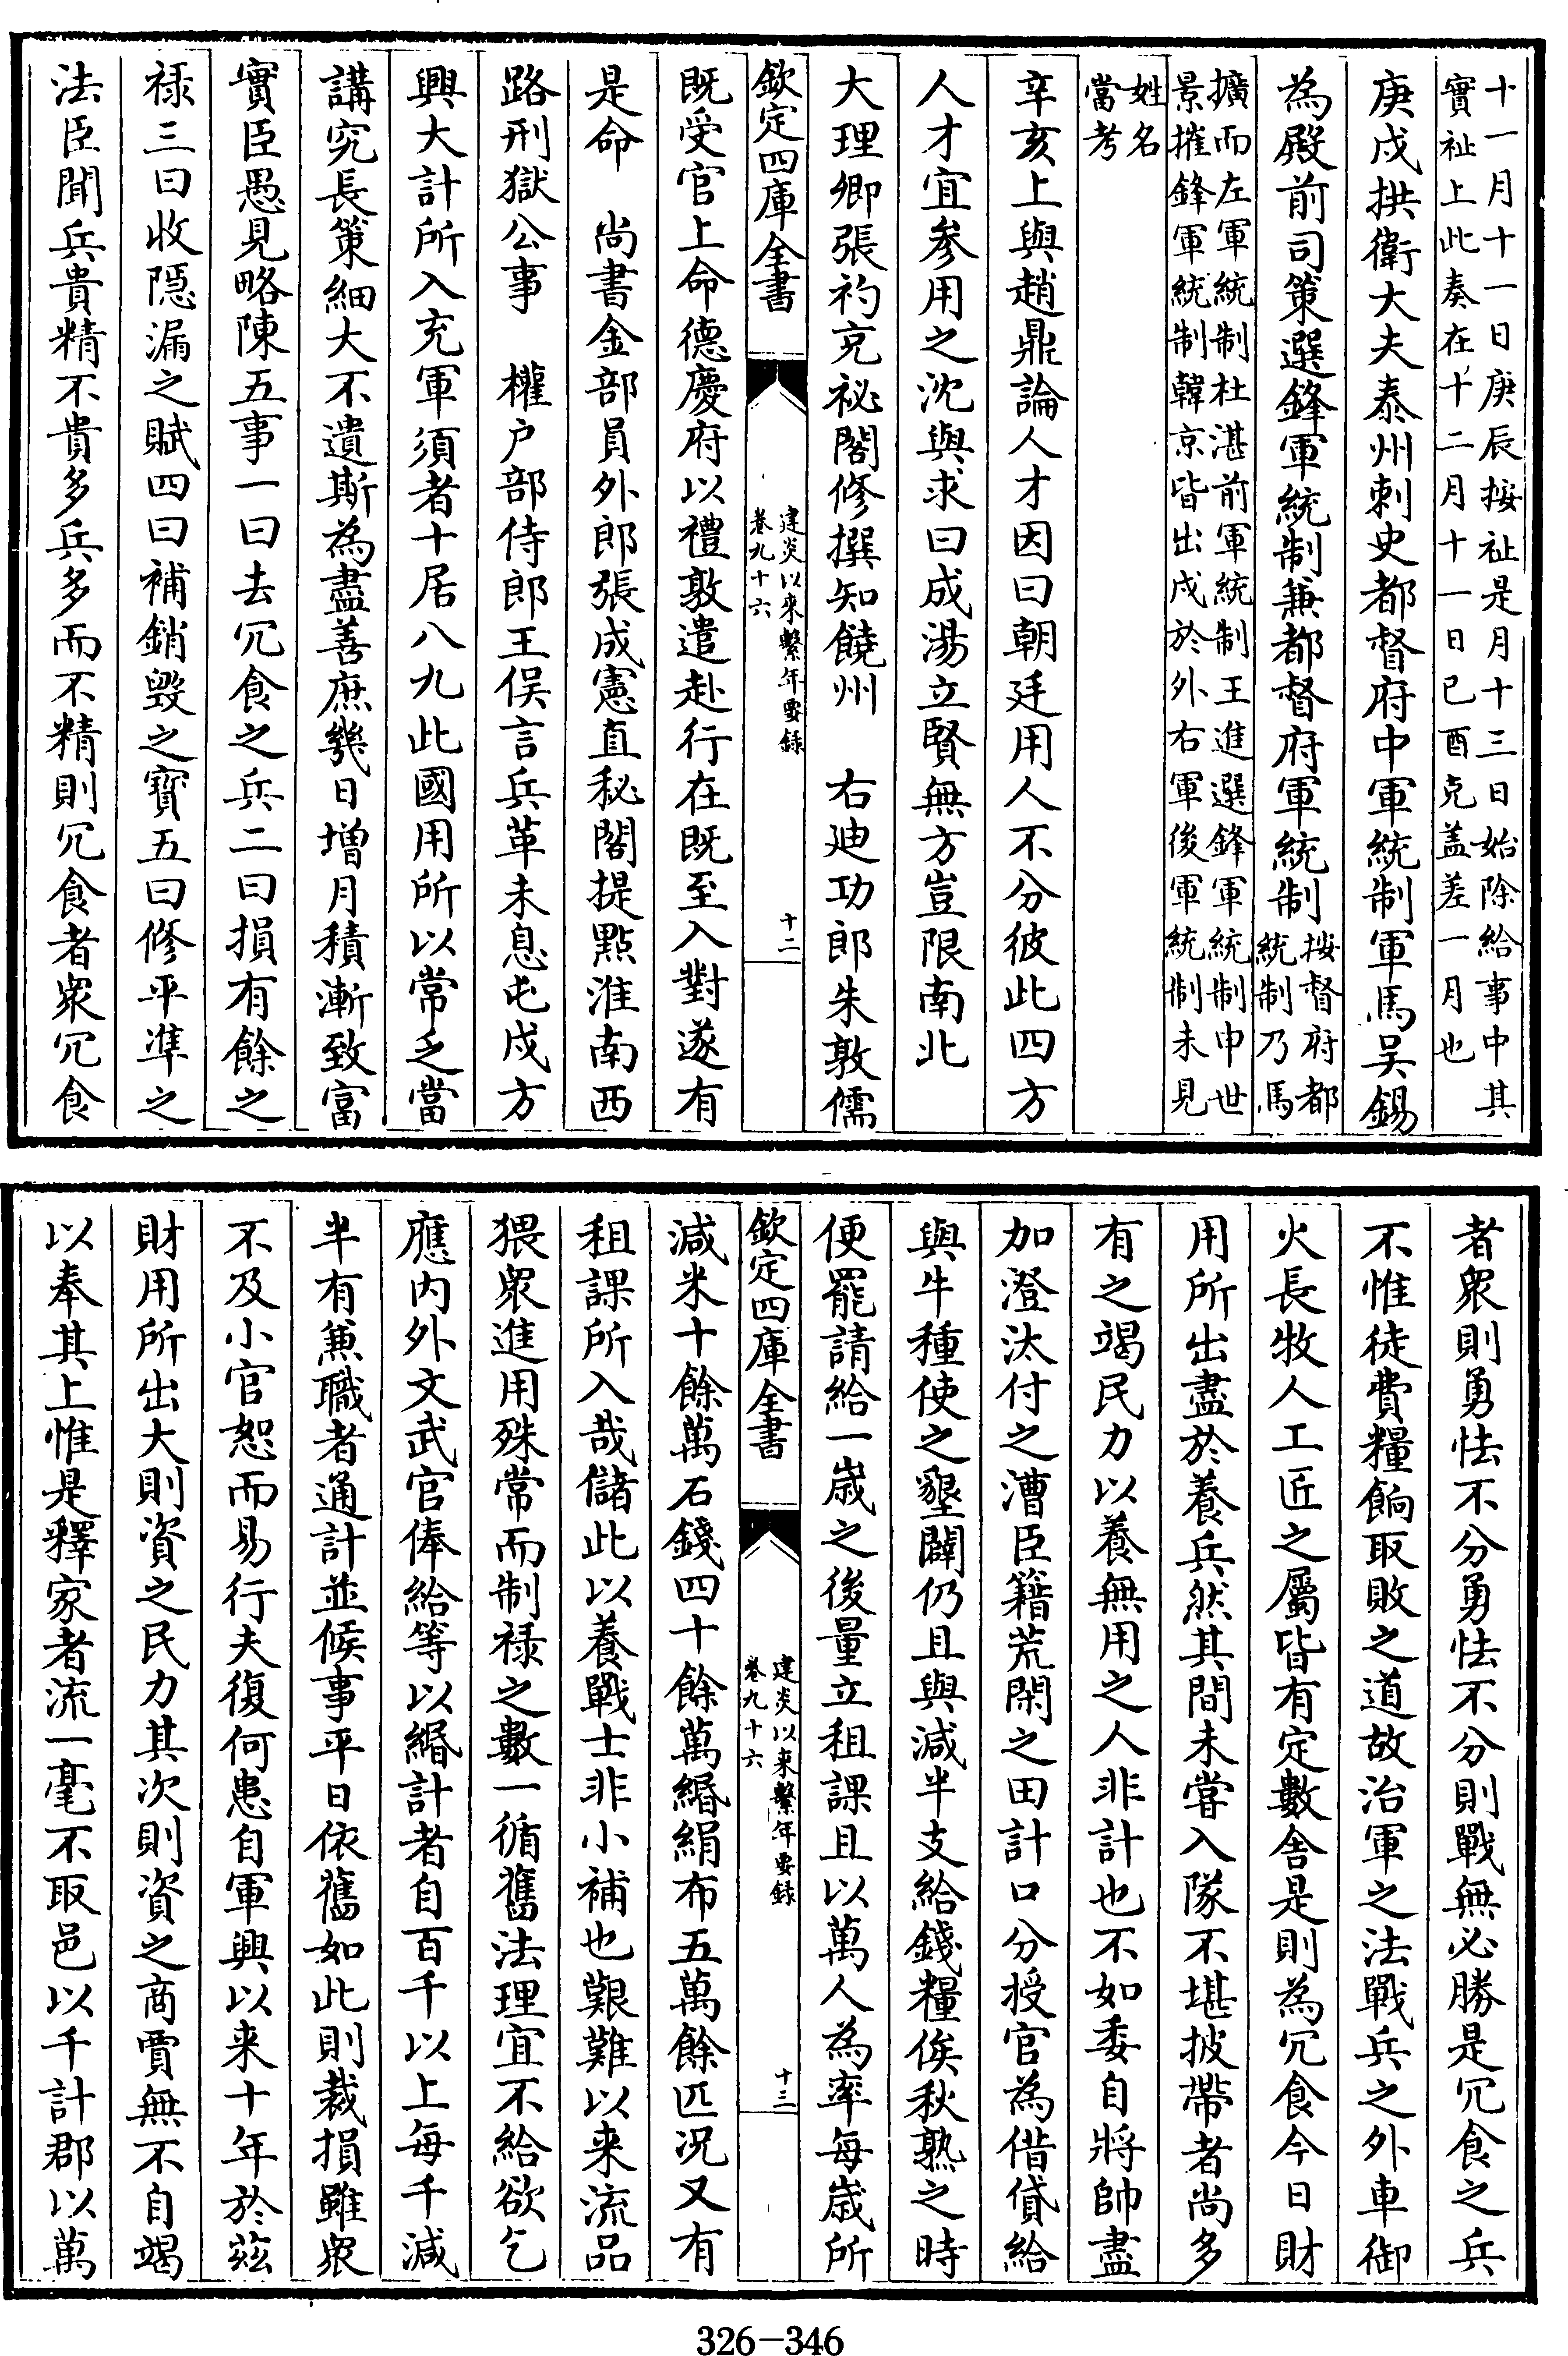 十一月十一日庚辰按祉是月十三日始除給事中其
實祉上此奏在十二月十一日己酉克盖差一月也
庚戍拱衛大夫泰州刺史都督府中軍統制軍馬吴錫
為殿前司策選鋒軍統制兼都督府軍統制按督府都
統制乃馬
擴而左軍統制杜湛前軍統制王進選鋒軍統制申世
景摧鋒軍統制韓京皆出戍於外右軍後軍統制未見
姓名
當考
辛亥上與趙鼎論人才因曰朝廷用人不分彼此四方
人才宜參用之沈與求曰成湯立賢無方豈限南北
大理卿張礿充祕閣修撰知饒州　右廸功郎朱敦儒
欽定四庫全書
建炎以來繫年要錄
卷九十六
十二
既受官上命德慶府以禮敦遣赴行在既至入對遂有
是命　尚書金部員外郎張成憲直秘閣提點淮南西
路刑獄公事　權户部侍郎王俁言兵革未息屯戍方
興大計所入充軍須者十居八九此國用所以常乏當
講究長策細大不遺斯為盡善庶幾日增月積漸致富
實臣愚見略陳五事一曰去冗食之兵二曰損有餘之
禄三曰收隱漏之賦四曰補銷毁之寳五曰修平凖之
法臣聞兵貴精不貴多兵多而不精則冗食者衆冗食
者衆則勇怯不分勇怯不分則戰無必勝是冗食之兵
不惟徒費糧餉取敗之道故治軍之法戰兵之外車御
火長牧人工匠之屬皆有定數舍是則為冗食今日財
用所出盡於養兵然其間未嘗入隊不堪披帶者尚多
有之竭民力以養無用之人非計也不如委自將帥盡
加澄汰付之漕臣籍荒閑之田計口分授官為借貸給
與牛種使之墾闢仍且與減半支給錢糧俟秋熟之時
便罷請給一歳之後量立租課且以萬人為率每歳所
欽定四庫全書
建炎以來繫年要錄
卷九十六
十三
減米十餘萬石錢四十餘萬緡絹布五萬餘匹况又有
租課所入哉儲此以養戰士非小補也艱難以来流品
猥衆進用殊常而制禄之數一循舊法理宜不給欲乞
應内外文武官俸給等以緡計者自百千以上每千減
半有兼職者通計並候事平日依舊如此則裁損雖衆
不及小官恕而易行夫復何患自軍興以来十年於兹
財用所出大則資之民力其次則資之商賈無不自竭
以奉其上惟是釋家者流一毫不取邑以千計郡以萬
326-346